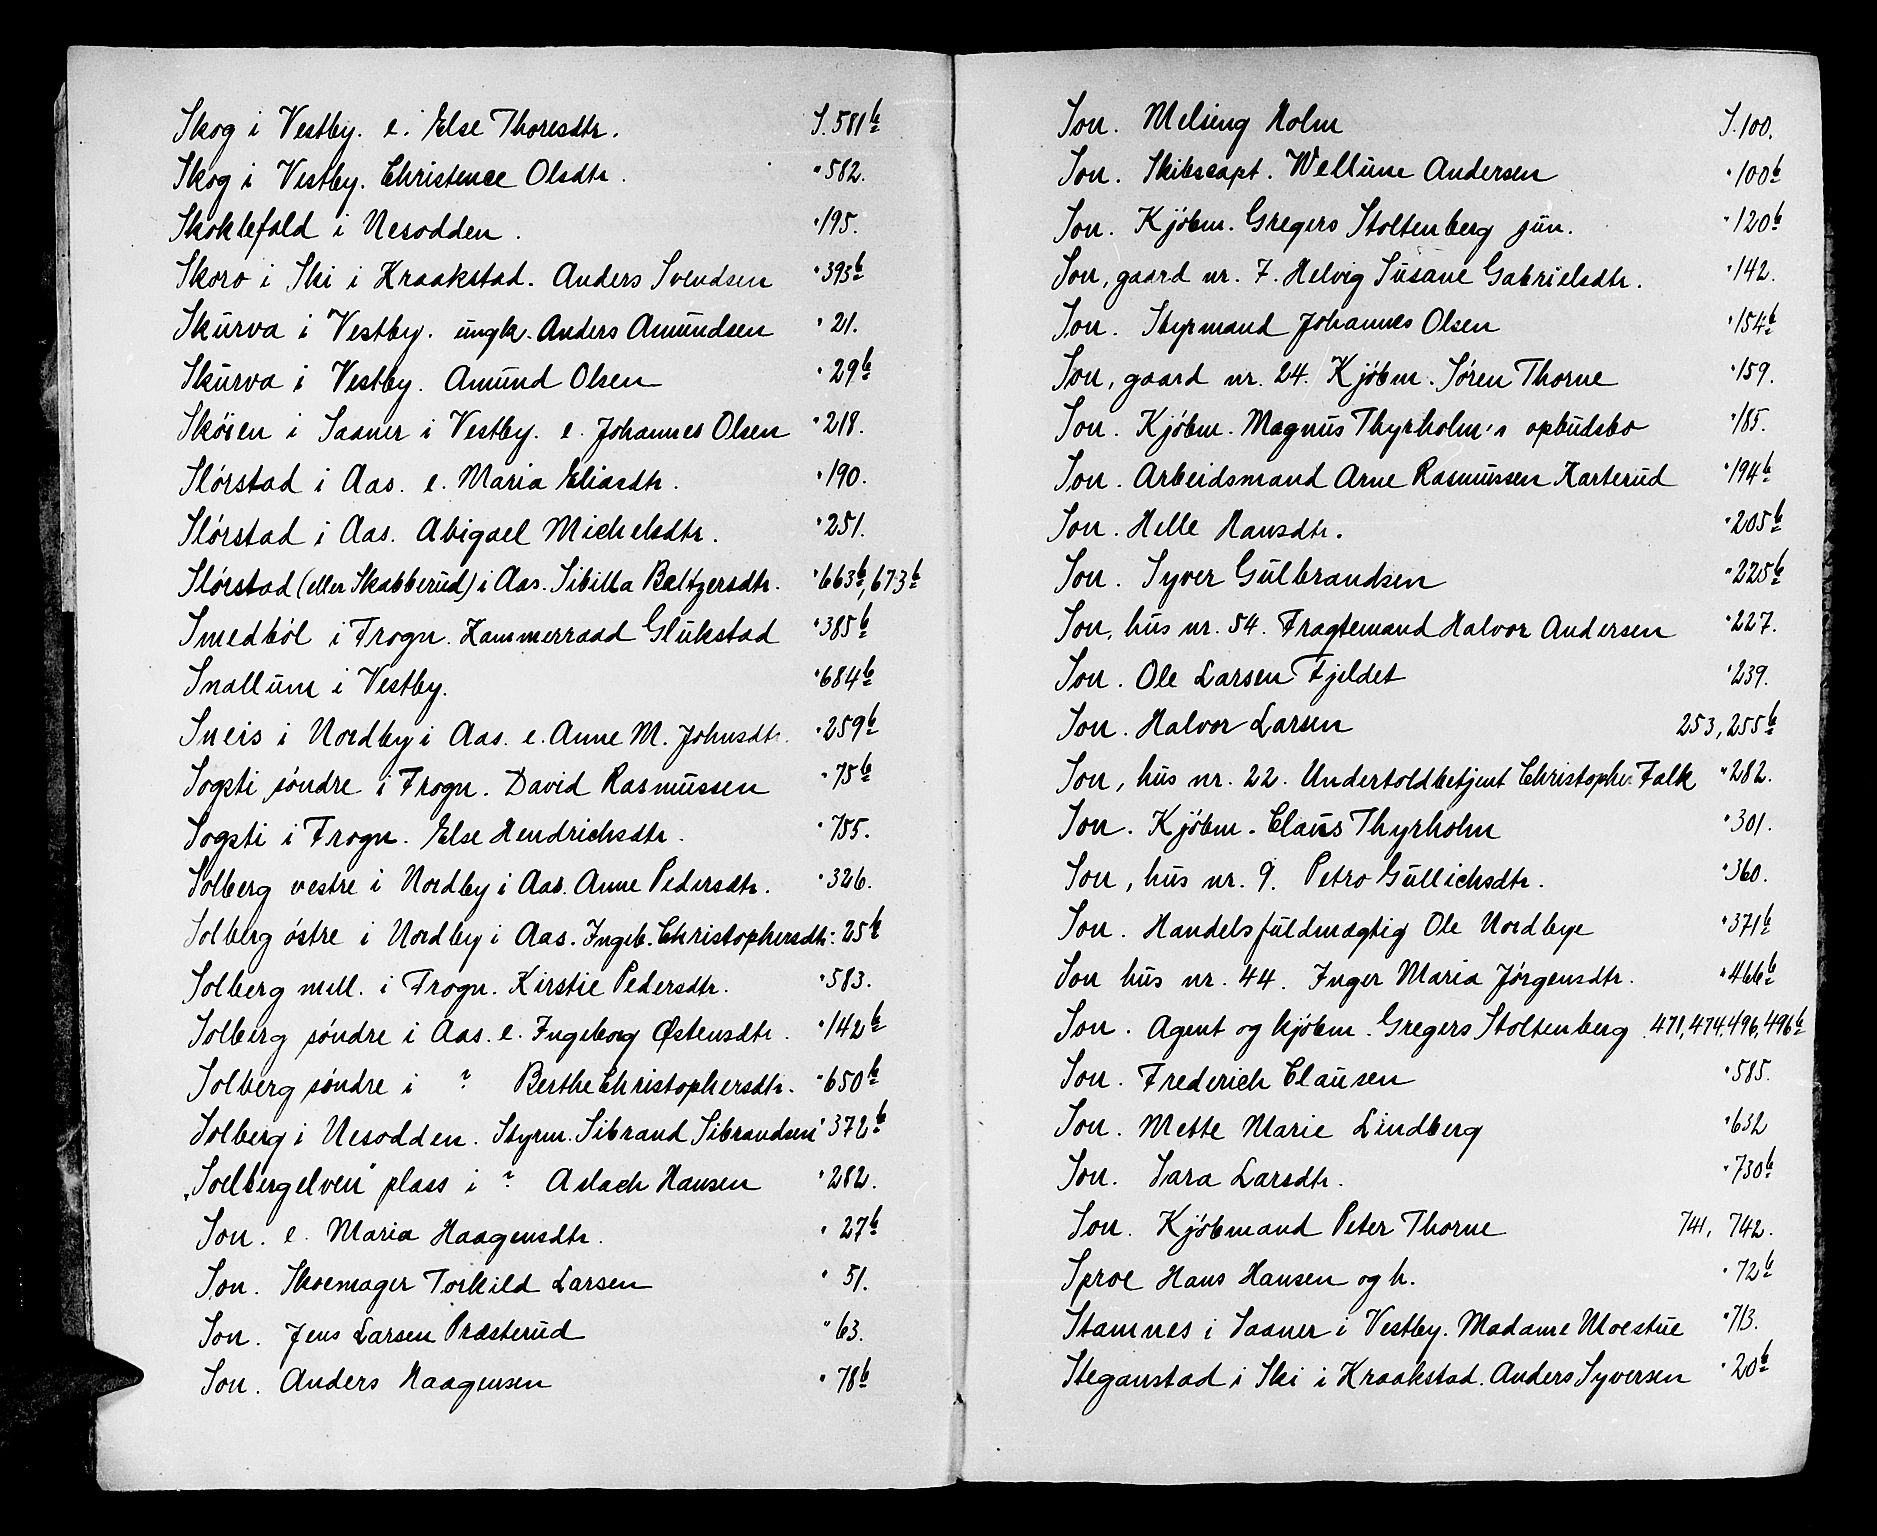 Skog i Vestby. e. Else Thoresdtr. S. 581b
Skog i Vestby. Christence Olsdtr. " 582.
Skoklefald i Nesodden. " 195.
Skoro i Ski i Kraakstad. Anders Svendsen " 393b
Skurva i Vestby. ungk. Anders Amundsen " 21.
Skurva i Vestby. Amund Olsen " 29b
Skøien i Saaner i Vestby. e. Johannes Olsen " 218.
Slørstad i Aas. e. Maria Eliasdtr. " 190.
Slørstad i Aas. Abigael Michelsdtr. " 251.
Slørstad (eller Skabberud) i Aas. Sibilla Baltzersdtr. " 663b, 673b
Smedbøl i Frogn. Kammerraad Glukstad " 385b
Snallum i Vestby. " 684b
Sneis i Nordby i Aas. e. Anne M. Johnsdtr. " 259b
Sogsti søndre i Frogn. David Rasmussen " 75b
Sogsti i Frogn. Else Hendrichsdtr. " 755.
Solberg vestre i Nordby i Aas. Anne Pedersdtr. " 326.
Solberg østre i Nordby i Aas. Ingeb. Christophersdtr: 25b
Solberg mell. i Frogn. Kirstie Pedersdtr. " 583.
Solberg søndre i Aas. e. Ingeborg Østensdtr. " 142b
Solberg søndre i ? Berthe Christophersdtr. " 650b
Solberg i Nesodden. Styrm. Sibrand Sibrandsen " 372b
„Soelbergelven" plass i ? Aslach Hansen " 282.
Son. e. Maria Haagensdtr. " 27b
Son. Skoemager Torkild Larsen " 51.
Son. Jens Larsen Præsterud " 63.
Son. Anders Haagensen " 78b
Son. Melsing Holm S. 100.
Son. Skibscapt. Wellum Andersen " 100b
Son. Kjøbm. Gregers Stoltenberg jun. " 120b
Son, gaard nr. 7. Helvig Susane Gabrielsdtr. " 142.
Son. Styrmand Johannes Olsen " 154b
Son, gaard nr. 24. Kjøbm. Søren Thorne " 159.
Son. Kjøbm. Magnus Thyrholm's opbudsbo " 185.
Son. Arbeidsmand Arne Rasmussen Karterud " 194b
Son. Helle Hansdtr. " 205b
Son. Syver Gulbrandsen " 225b
Son, hus nr. 54. Fragtemand Halvor Andersen " 227.
Son. Ole Larsen Fjeldet " 239.
Son. Halvor Larsen 253, 255b
Son, hus nr. 22. Undertoldbetjent Christopher Falk " 282.
Son. Kjøbm. Claus Thyrholm " 301.
Son, hus nr. 9. Petro Gullichsdtr. " 360.
Son. Handelsfuldmægtig Ole Nordbye " 371b
Son hus nr. 44. Inger Maria Jørgensdtr. " 466b
Son. Agent og kjøbm. Gregers Stoltenberg. 471, 474, 496, 496b
Son. Frederich Clausen " 585.
Son. Mette Marie Lindberg " 632
Son. Sara Larsdtr. " 730b
Son. Kjøbmand Peter Thorne 741, 742.
Sproe Hans Hansen og h. " 72b
Stamnes i Saaner i Vestby. Madame Moestue " 713.
Steganstad i Ski i Kraakstad. Anders Syversen " 20b